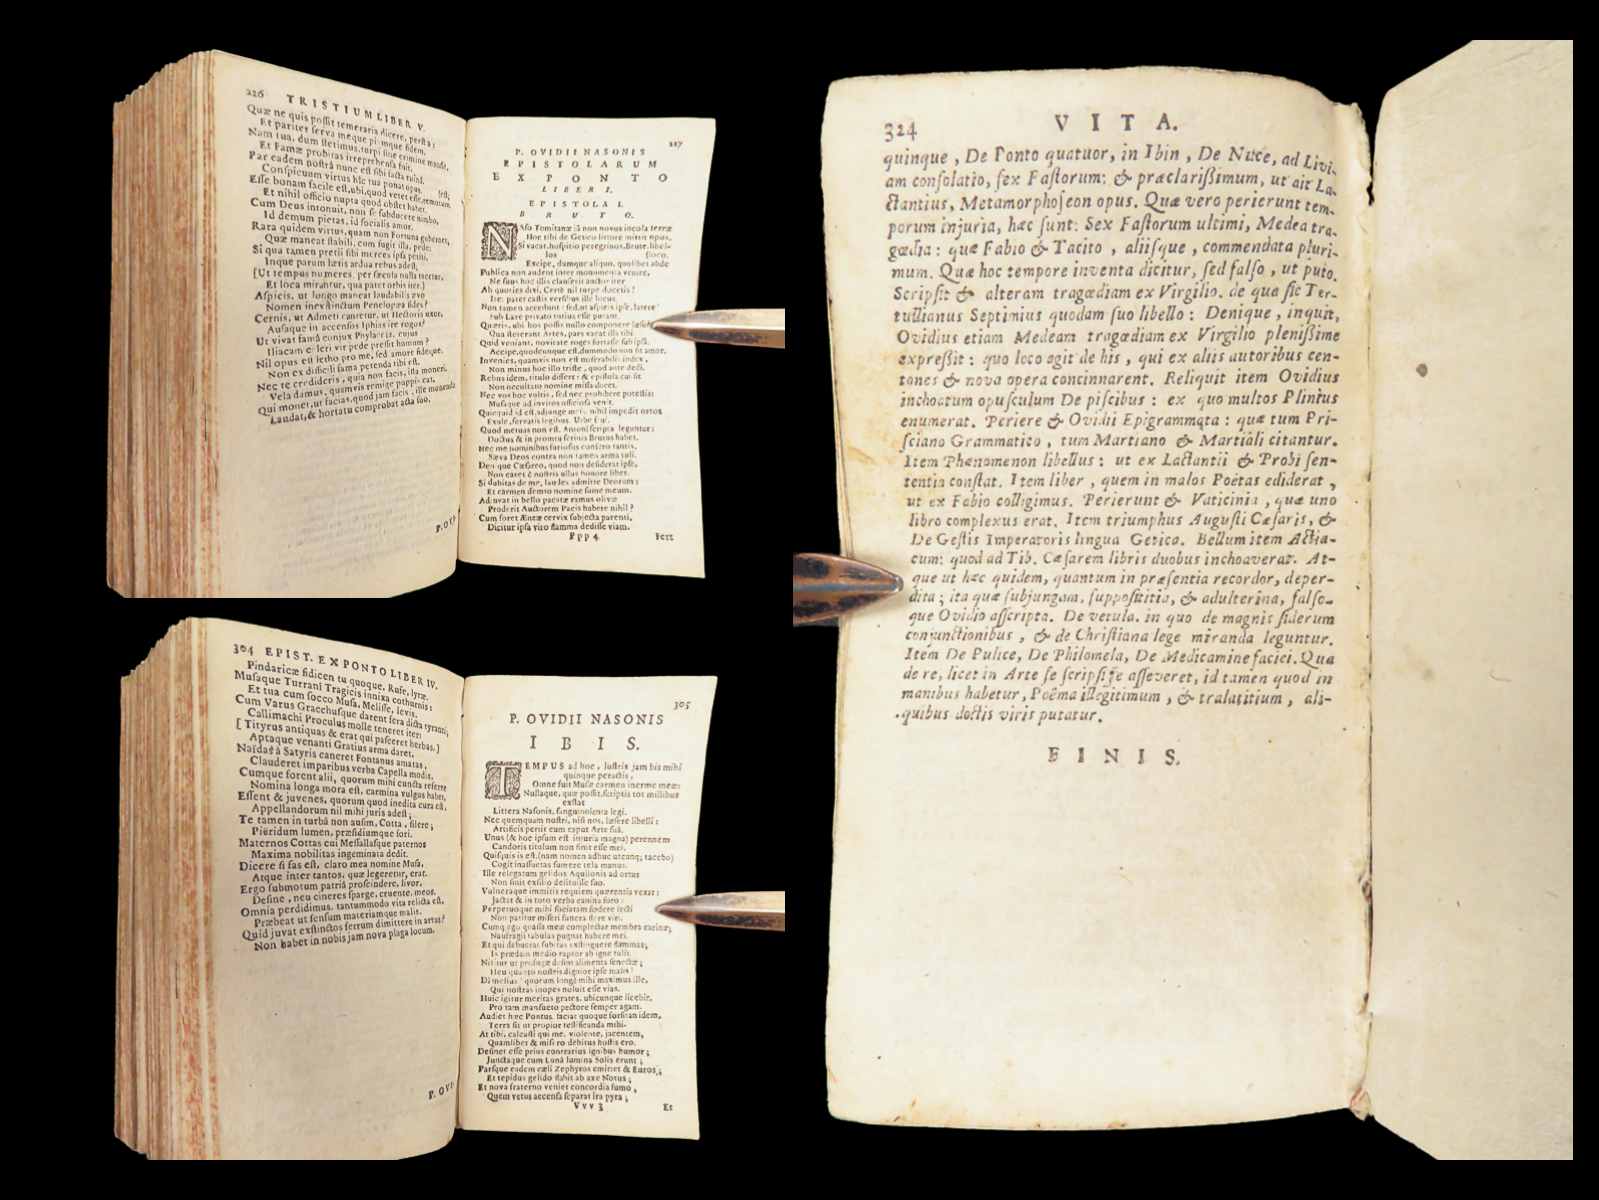 226 TRISTIUM LIBER V.
Quæ ne quis possit temeraria dicere, persta:
Et pariter serva meque piumque fidem.
Nam tua, dum stetimus, turpi sine crimine mansit,
Et Famæ probitas irreprehensa fuit.
Par eadem nostrâ nunc est sibi facta ruinâ.
Conspicuum virtus hîc tua ponat opus.
Esse bonam facile est, ubi, quod vetet esse, remotum
Et nihil officio nupta quod obstet habet.
Cum Deus intonuit, non se subducere nimbo,
Id demum pietas, id socialis amor.
Rara quidem virtus, quam non Fortuna gubernet,
Quæ maneat stabili, cum fugit illa, pede:
Si qua tamen pretii sibi merces ipsa petiti,
Inque parum lætis ardua rebus adest;
[Ut tempus numeres, per sæcula nulla tacetur,
Et loca mirantur, qua patet orbis iter.]
Aspicis, ut longo maneat laudabilis ævo
Nomen inexstinctum Penelopæa fides?
Cernis, ut Admeti cantetur, ut Hectoris uxor,
Ausaque in accensos Iphias ire rogos?
Ut vivat famâ conjux Phylaceïa, cujus
Iliacam celeri vir pede pressit humum?
Nil opus est letho pro me, sed amore fideque.
Non ex difficili fama petenda tibi est.
Nec te credideris, quia non facis, ista moneri.
Vela damus, quamvis remige puppis eat.
Qui monet, ut facias, quod jam facis, ille monendo
Laudat, & hortatu comprobat acta suo.
P. OVI-
227
P. OVIDII NASONIS
EPISTOLARUM
EX PONTO
LIBER I.
EPISTOLA I.
BRUTO.
NAso Tomitanæ jã non novus incola terræ
Hoc tibi de Getico littore mittit opus.
Si vacat, hospitio peregrinos, Brute, libel-
los (loco.
Excipe, dumque aliquo, quolibet abde
Publica non audent inter monumenta venire,
Ne suus hoc illis clauserit auctor iter
Ah quoties dixi, Certè nil turpe docetis!
Ite: patet castis versibus ille locus.
Non tamen accedunt: sed, ut aspicis ipse, latere
Sub Lare privato tutius esse putant.
Quæris, ubi hos possis nullo componere læso?
Qua steterant Artes, pars vacat illa tibi.
Quid veniant, novitate roges fortasse sub ipsâ.
Accipe, quodcunque est, dummodo non sit amor.
Invenies, quamvis non est miserabilis index,
Non minus hoc illo triste, quod ante dedi.
Rebus idem, titulo differt: & epistola cui sit
Non occultato nomine missa docet.
Nec vos hoc vultis, sed nec prohibere potestis:
Musaque ad invitos officiosa venit.
Quicquid id est, adjunge meis. nihil impedit ortos
Exule, servatis legibus, Urbe frui.
Quod metuas non est. Antonî scripta leguntur:
Doctus & in promtu scrinia Brutus habet.
Nec me nominibus furiosus confero tantis.
Sæva Deos contra non tamen arma tuli.
Denique Cæsareo, quod non desiderat ipse,
Non caret è nostris ullus honore liber.
Si dubitas de me, laudes admitte Deorum:
Et carmen demto nomine sume meum.
Adjuvat in bello pacatæ ramus olivæ
Proderit Auctorem Pacis habere nihil?
Cum foret Æneæ cervix subjecta parenti,
Dicitur ipsa viro flamma dedisse viam.
Ppp 4 Fert
304 EPIST. EX PONTO LIBER IV.
Pindaricæ fidicen tu quoque, Rufe, lyræ.
Musaque Turranî Tragicis innixa cothurnis:
Et tua cum socco Musa, Melisse, levis.
Cum Varus Gracchusque darent fera dicta tyranni,
Callimachi Proculus molle teneret iter:
[Tityrus antiquas & erat qui pasceret herbas,]
Aptaque venanti Gratius arma daret.
Naïdas à Satyris caneret Fontanus amatas,
Clauderet imparibus verba Capella modis.
Cumque forent alii, quorum mihi cuncta referre
Nomina longa mora est, carmina vulgus habet.
Essent & juvenes, quorum quod inedita cura est,
Appellandorum nil mihi juris adest;
Te tamen in turbâ non ausim, Cotta, silere;
Piëridum lumen, præsidiumque fori.
Maternos Cottas cui Messallasque paternos
Maxima nobilitas ingeminata dedit.
Dicere si fas est, claro mea nomine Musa,
Atque inter tantos, quæ legeretur, erat.
Ergo submotum patriâ proscindere, livor,
Desine, neu cineres sparge, cruente, meos.
Omnia perdidimus. tantummodo vita relicta est,
Præbeat ut sensum materiamque malis.
Quid juvat exstinctos ferrum dimittere in artus?
Non habet in nobis jam nova plaga locum.
P. OVI-
305
P. OVIDII NASONIS
IBIS.
TEMPUS ad hoc, lustris jam bis mihi
quinque peractis,
Omne fuit Musæ carmen inerme meæ:
Nullaque, quæ possit, scriptis tot millibus
exstat
Littera Nasonis, sanguinolenta legi.
Nec quemquam nostri, nisi nos, læsere libelli:
Artificis periit cum caput Arte suâ.
Unus (& hoc ipsum est injuria magna) perennem
Candoris titulum non sinit esse mei.
Quisquis is est, (nam nomen adhuc utcunq; tacebo)
Cogit inassuetas sumere tela manus.
Ille relegatum gelidos Aquilonis ad ortus
Non sinit exsilio delituisse suo.
Vulneraque immitis requiem quærentia vexat:
Jactat & in toto verba canina foro:
Perpetuoque mihi sociatam fœdere lecti
Non patitur miseri funera flere viri.
Cumq; ego quassa meæ complectar membra carinæ;
Naufragii tabulas pugnat habere mei.
Et qui debuerat subitas exstinguere flammas;
Is prædam medio raptor ab igne tulit
Nititur ut profugæ desint alimenta senectæ;
Heu quanto nostris dignior ipse malis!
Dî melius! quorum longè mihi maximus ille,
Qui nostras inopes noluit esse vias.
Huic igitur meritas grates, ubicunque licebit,
Pro tam mansueto pectore semper agam.
Audiet hæc Pontus. faciat quoque forsitan idem,
Terra sit ut propior testificanda mihi.
At tibi, calcasti qui me, violente, jacentem,
Quamlibet & misero debitus hostis ero.
Desinet esse prius contrarius ignibus humor;
Junctaque cum Lunâ lumina Solis erunt;
Parsque eadem cæli Zephyros emittet & Euros;
Et tepidus gelido flabit ab axe Notus;
Et nova fraterno veniet concordia fumo,
Quem vetus accensâ separat ira pyrâ;
Vvv 3 Et
324 VITA.
quinque, De Ponto quatuor, in Ibin, De Nuce, ad Livi-
am consolatio, sex Fastorum: & præclarißimum, ut ait La-
ctantius, Metamorphoseon opus. Quæ vero perierunt tem-
porum injuria, hæc sunt: Sex Fastorum ultimi, Medea tra-
gœdia: quæ Fabio & Tacito, aliisque, commendata pluri-
mum. Quæ hoc tempore inventa dicitur, sed falso, ut puto.
Scripsit & alteram tragœdiam ex Virgilio. de qua sic Ter-
tullianus Septimius quodam suo libello: Denique, inquit,
Ovidius etiam Medeam tragœdiam ex Virgilio plenißime
expreßit: quo loco agit de his, qui ex aliis autoribus cen-
tones & nova opera concinnarent. Reliquit item Ovidius
inchoatum opusculum De piscibus: ex quo multos Plinius
enumerat. Periere & Ovidii Epigrammata: quæ tum Pri-
sciano Grammatico, tum Martiano & Martiali citantur.
Item Phænomenon libellus: ut ex Lactantii & Probi sen-
tentia constat. Item liber, quem in malos Poëtas ediderat,
ut ex Fabio colligimus. Perierunt & Vaticinia, quæ uno
libro complexus erat. Item triumphus Augusti Cæsaris, &
De Gestis Imperatoris lingua Getica. Bellum item Actia-
cum: quod ad Tib. Cæsarem libris duobus inchoaverat. At-
que ut hæc quidem, quantum in præsentia recordor, deper-
dita; ita quæ subjungam, supposititia, & adulterina, falso-
que Ovidio asscripta. De vetula. in quo de magnis siderum
conjunctionibus, & de Christiana lege miranda leguntur.
Item De Pulice, De Philomela, De Medicamine faciei. Qua
de re, licet in Arte se scripsisse asseveret, id tamen quod in
manibus habetur, Poëma illegitimum, & tralatitium, ali-
quibus doctis viris putatur.
FINIS.